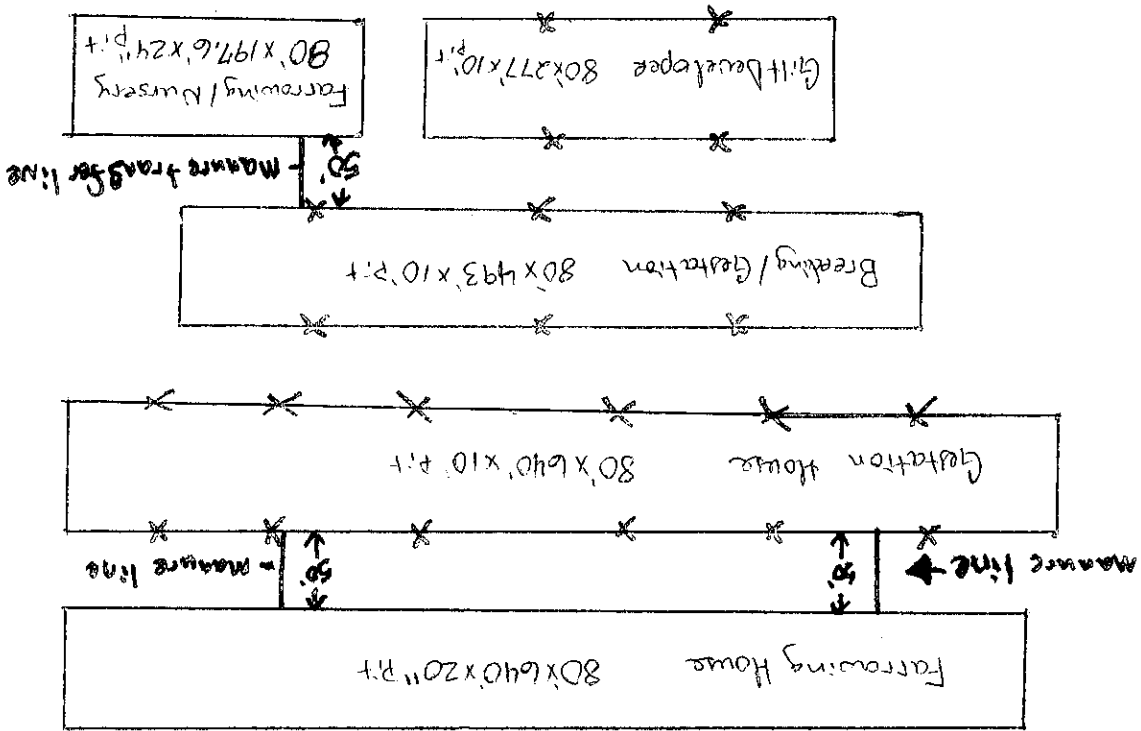 Farrowing House 80'x640'x20" Pit
manure line
50'
50'
- manure line
Gestation House 80'x640'x10' Pit
Breeding/Gestation 80'x493'x10' Pit
50'
- manure transfer line
Gilt Developer 80'x277'x10' Pit
Farrowing/Nursery
80'x197.6'x24" Pit